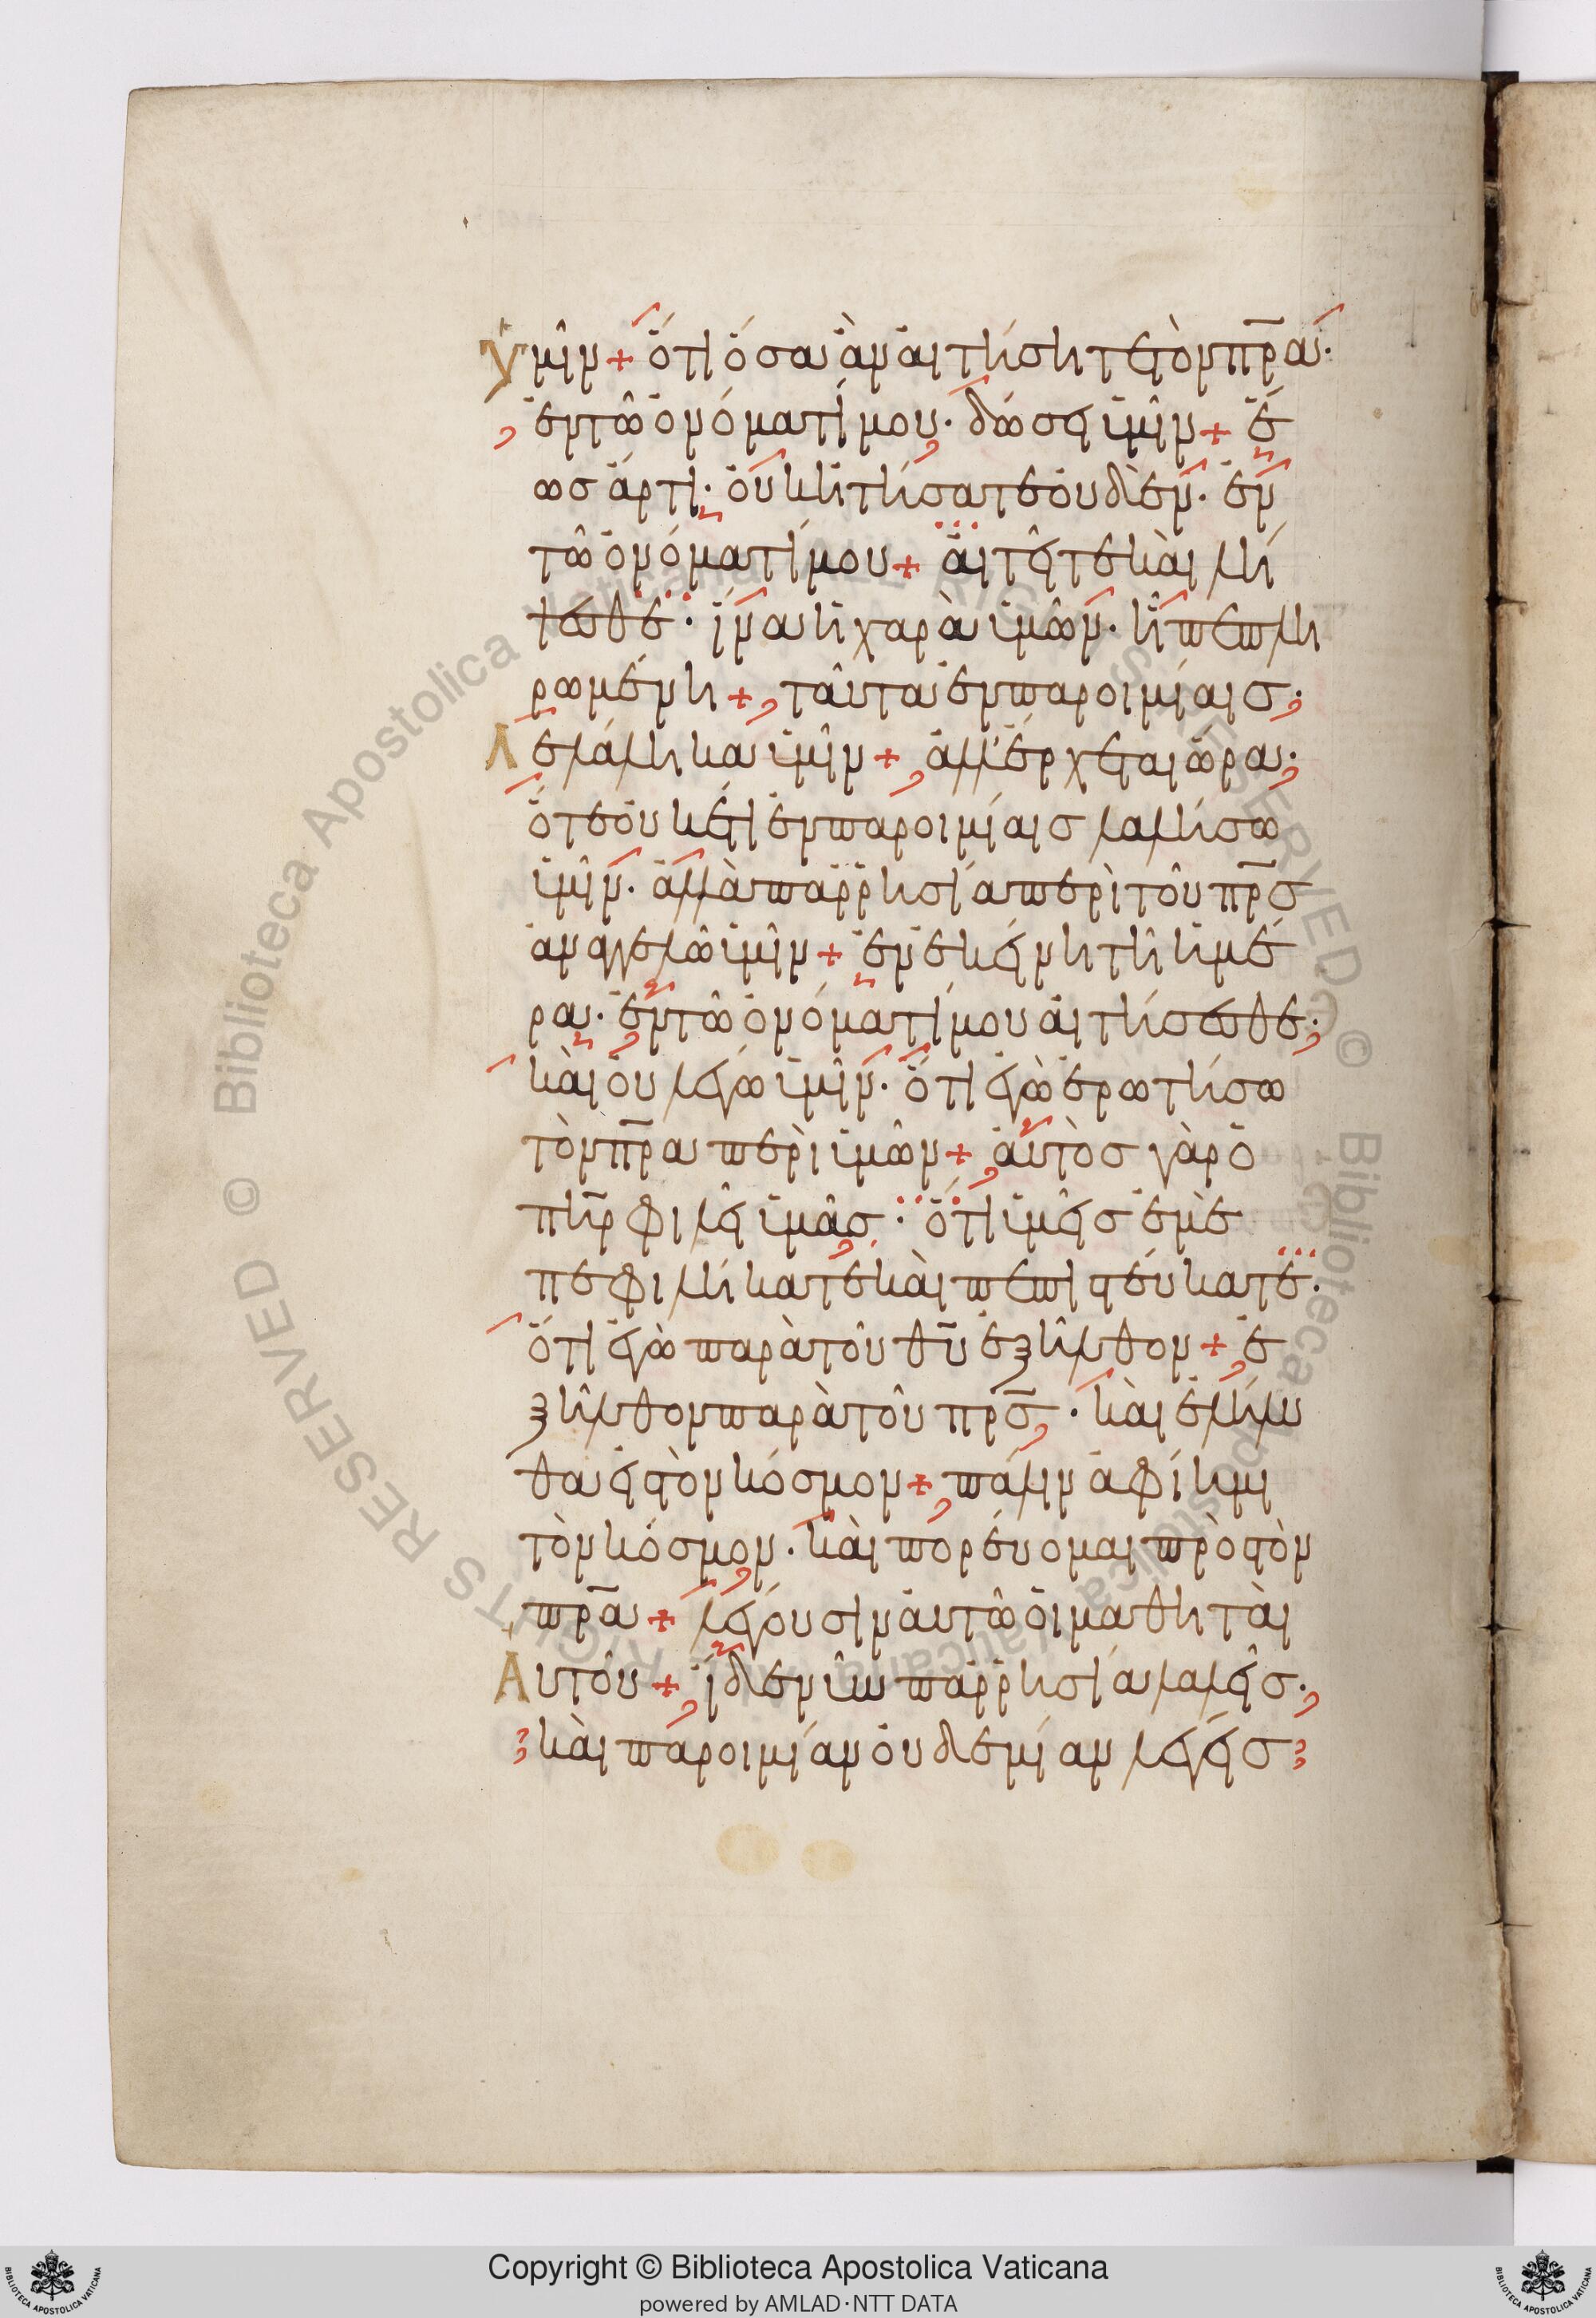 ὑμῖν + ὅτι ὅσα ἂν αἰτήσητε τὸν πρ̅α·
ἐν τῶ ὀνόματί μου· δώσει ὑμῖν + ἕ
ωσ ἄρτι· οὐκ ἠτήσατε οὐδέν· ἐν
τῶ ὀνόματί μου + αἰτεῖτε καὶ λή
ψεσθε· ἵνα ἡ χαρὰ ὑμῶν· ἦ πεπλη
ρωμένη + ταῦτα ἐν παροιμίαισ·
λελάληκα ὑμῖν + ἀλλ' ἔρχεται ὥρα·
ὅτε οὐκέτι ἐν παροιμίαισ λαλήσω
ὑμῖν· ἀλλὰ παρρησία περὶ τοῦ πρ̅σ
ἀναγγελῶ ὑμῖν + ἐν ἐκείνη τῆ ἡμέ
ρα· ἐν τῶ ὀνόματί μου αἰτήσεσθε·
καὶ οὐ λέγω ὑμῖν· ὅτι ἐγὼ ἐρωτήσω
τὸν πρ̅α περὶ ὑμῶν + αὐτὸσ γὰρ ὁ
πη̅ρ φιλεῖ ὑμᾶσ· ὅτι ὑμεῖσ ἐμὲ
πεφιλήκατε καὶ πεπιστεύκατε·
ὅτι ἐγὼ παρὰ τοῦ θ̅υ ἐξῆλθον + ἐ
ξῆλθον παρὰ τοῦ πρ̅σ· καὶ ἐλήλυ
θα εἰσ τὸν κόσμον + πάλιν ἀφίημι
τὸν κόσμον· καὶ πορεύομαι πρὸσ τὸν
πρ̅α + λέγουσιν αὐτῶ οἱ μαθηταὶ
Αυτοῦ + ἴδε νῦν παρρησία λαλεῖσ·
καὶ παροιμίαν οὐδεμίαν λέγεισ
Copyright © Biblioteca Apostolica Vaticana
powered by AMLAD·NTT DATA